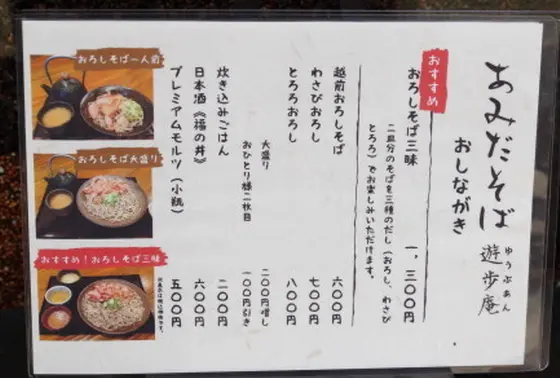 あみだそば 遊歩庵
ゆうぶあん
おしながき
おすすめ
おろしそば三昧 一、三〇〇円
二皿分のそばを三種のだし(おろし、わさび
とろろ)でお楽しみいただけます。
越前おろしそば 六〇〇円
わさびおろし 七〇〇円
とろろおろし 八〇〇円
大盛り 二〇〇円増し
おひとり様二枚目 一〇〇円引き
炊き込みごはん 二〇〇円
日本酒《福の井》 六〇〇円
プレミアムモルツ(小瓶) 五〇〇円
おろしそば一人前
おろしそば大盛り
おすすめ!おろしそば三昧